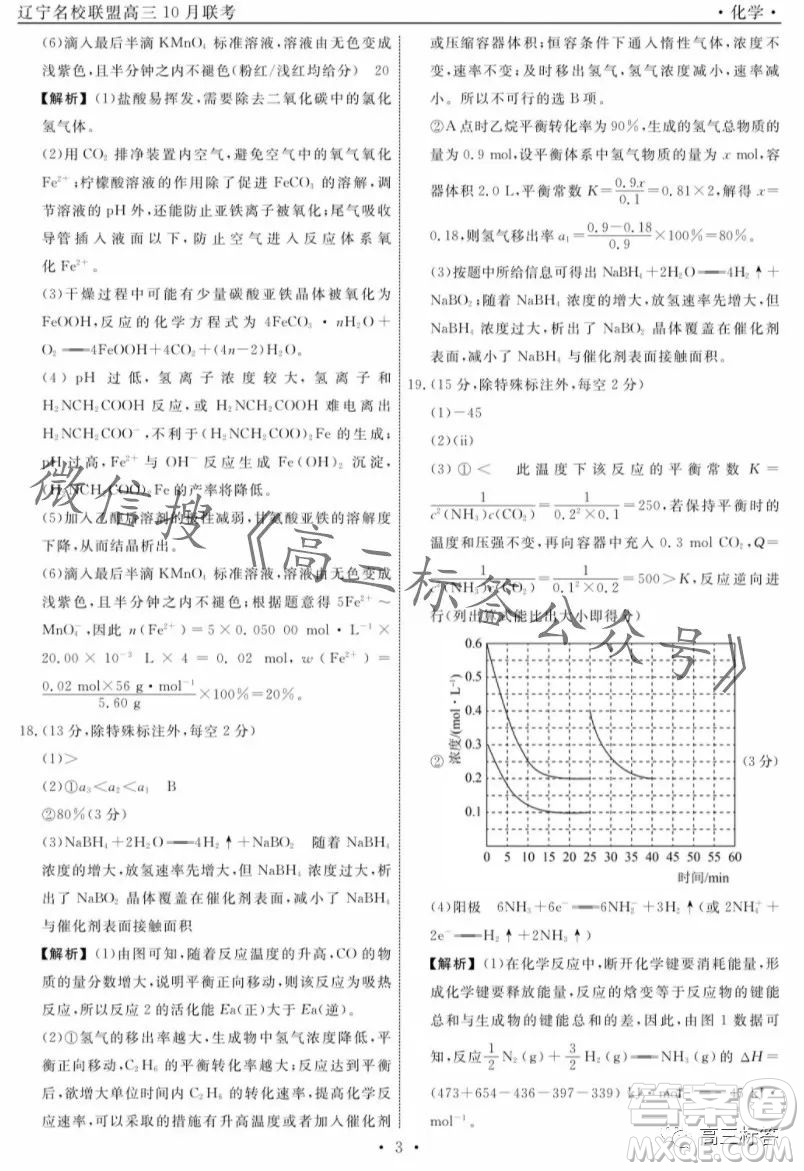 辽宁名校联盟高三10月联考
·化学·
(6)滴入最后半滴 KMnO₄ 标准溶液,溶液由无色变成
浅紫色,且半分钟之内不褪色(粉红/浅红均给分) 20
【解析】(1)盐酸易挥发,需要除去二氧化碳中的氯化
氢气体。
(2)用 CO₂ 排净装置内空气,避免空气中的氧气氧化
Fe²⁺;柠檬酸溶液的作用除了促进 FeCO₃ 的溶解,调
节溶液的 pH 外,还能防止亚铁离子被氧化;尾气吸收
导管插入液面以下,防止空气进入反应体系氧
化 Fe²⁺。
(3)干燥过程中可能有少量碳酸亚铁晶体被氧化为
FeOOH,反应的化学方程式为 4FeCO₃·nH₂O+
O₂══4FeOOH+4CO₂+(4n−2)H₂O。
(4) pH 过低,氢离子浓度较大,氢离子和
H₂NCH₂COOH 反应,或 H₂NCH₂COOH 难电离出
H₂NCH₂COO⁻,不利于(H₂NCH₂COO)₂Fe 的生成;
pH 过高,Fe²⁺ 与 OH⁻ 反应生成 Fe(OH)₂ 沉淀,
(H₂NCH₂COO)₂Fe 的产率将降低。
(5)加入乙醇后溶剂的极性减弱,甘氨酸亚铁的溶解度
下降,从而结晶析出。
(6)滴入最后半滴 KMnO₄ 标准溶液,溶液由无色变成
浅紫色,且半分钟之内不褪色;根据题意得 5Fe²⁺~
MnO₄⁻,因此 n(Fe²⁺)=5×0.050 00 mol·L⁻¹×
20.00×10⁻³ L×4=0.02 mol,w(Fe²⁺)=
0.02 mol×56 g·mol⁻¹/5.60 g×100%=20%。
18.(13 分,除特殊标注外,每空 2 分)
(1)>
(2)①a₃<a₂<a₁ B
②80%(3 分)
(3)NaBH₄+2H₂O══4H₂↑+NaBO₂ 随着 NaBH₄
浓度的增大,放氢速率先增大,但 NaBH₄ 浓度过大,析
出了 NaBO₂ 晶体覆盖在催化剂表面,减小了 NaBH₄
与催化剂表面接触面积
【解析】(1)由图可知,随着反应温度的升高,CO 的物
质的量分数增大,说明平衡正向移动,则该反应为吸热
反应,所以反应 2 的活化能 Ea(正)大于 Ea(逆)。
(2)①氢气的移出率越大,生成物中氢气浓度降低,平
衡正向移动,C₂H₆ 的平衡转化率越大;反应达到平衡
后,欲增大单位时间内 C₂H₆ 的转化速率,提高化学反
应速率,可以采取的措施有升高温度或者加入催化剂
或压缩容器体积;恒容条件下通入惰性气体,浓度不
变,速率不变;及时移出氢气,氢气浓度减小,速率减
小。所以不可行的选 B 项。
②A 点时乙烷平衡转化率为 90%,生成的氢气总物质的
量为 0.9 mol,设平衡体系中氢气物质的量为 x mol,容
器体积 2.0 L,平衡常数 K=0.9x/0.1=0.81×2,解得 x=
0.18,则氢气移出率 a₁=(0.9−0.18)/0.9×100%=80%。
(3)按题中所给信息可得出 NaBH₄+2H₂O══4H₂↑+
NaBO₂;随着 NaBH₄ 浓度的增大,放氢速率先增大,但
NaBH₄ 浓度过大,析出了 NaBO₂ 晶体覆盖在催化剂
表面,减小了 NaBH₄ 与催化剂表面接触面积。
19.(15 分,除特殊标注外,每空 2 分)
(1)−45
(2)(ii)
(3)①< 此温度下该反应的平衡常数 K=
1/(c²(NH₃)c(CO₂))=1/(0.2²×0.1)=250,若保持平衡时的
温度和压强不变,再向容器中充入 0.3 mol CO₂,Q=
1/(c²(NH₃)c(CO₂))=1/(0.1²×0.2)=500>K,反应逆向进
行(列出算式能比出大小即得分)
②
浓度/(mol·L⁻¹)
0.6
0.5
0.4
0.3
0.2
0.1
0 5 10 15 20 25 30 35 40 45 50 55 60
时间/min
(3 分)
(4)阳极 6NH₃+6e⁻══6NH₂⁻+3H₂↑(或 2NH₄⁺+
2e⁻══H₂↑+2NH₃↑)
【解析】(1)在化学反应中,断开化学键要消耗能量,形
成化学键要释放能量,反应的焓变等于反应物的键能
总和与生成物的键能总和的差,因此,由图 1 数据可
知,反应 1/2 N₂(g)+3/2 H₂(g)══NH₃(g)的 ΔH=
(473+654−436−397−339)
mol⁻¹。
·3·
微信搜《高三标答公众号》
答案圈
高三标答